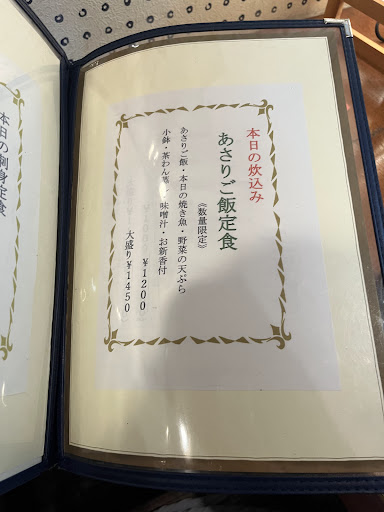 本日の炊込み
あさりご飯定食
《数量限定》
あさりご飯・本日の焼き魚・野菜の天ぷら
小鉢・茶わん蒸し・味噌汁・お新香付
¥1200
大盛り¥1450
本日の刺身定食